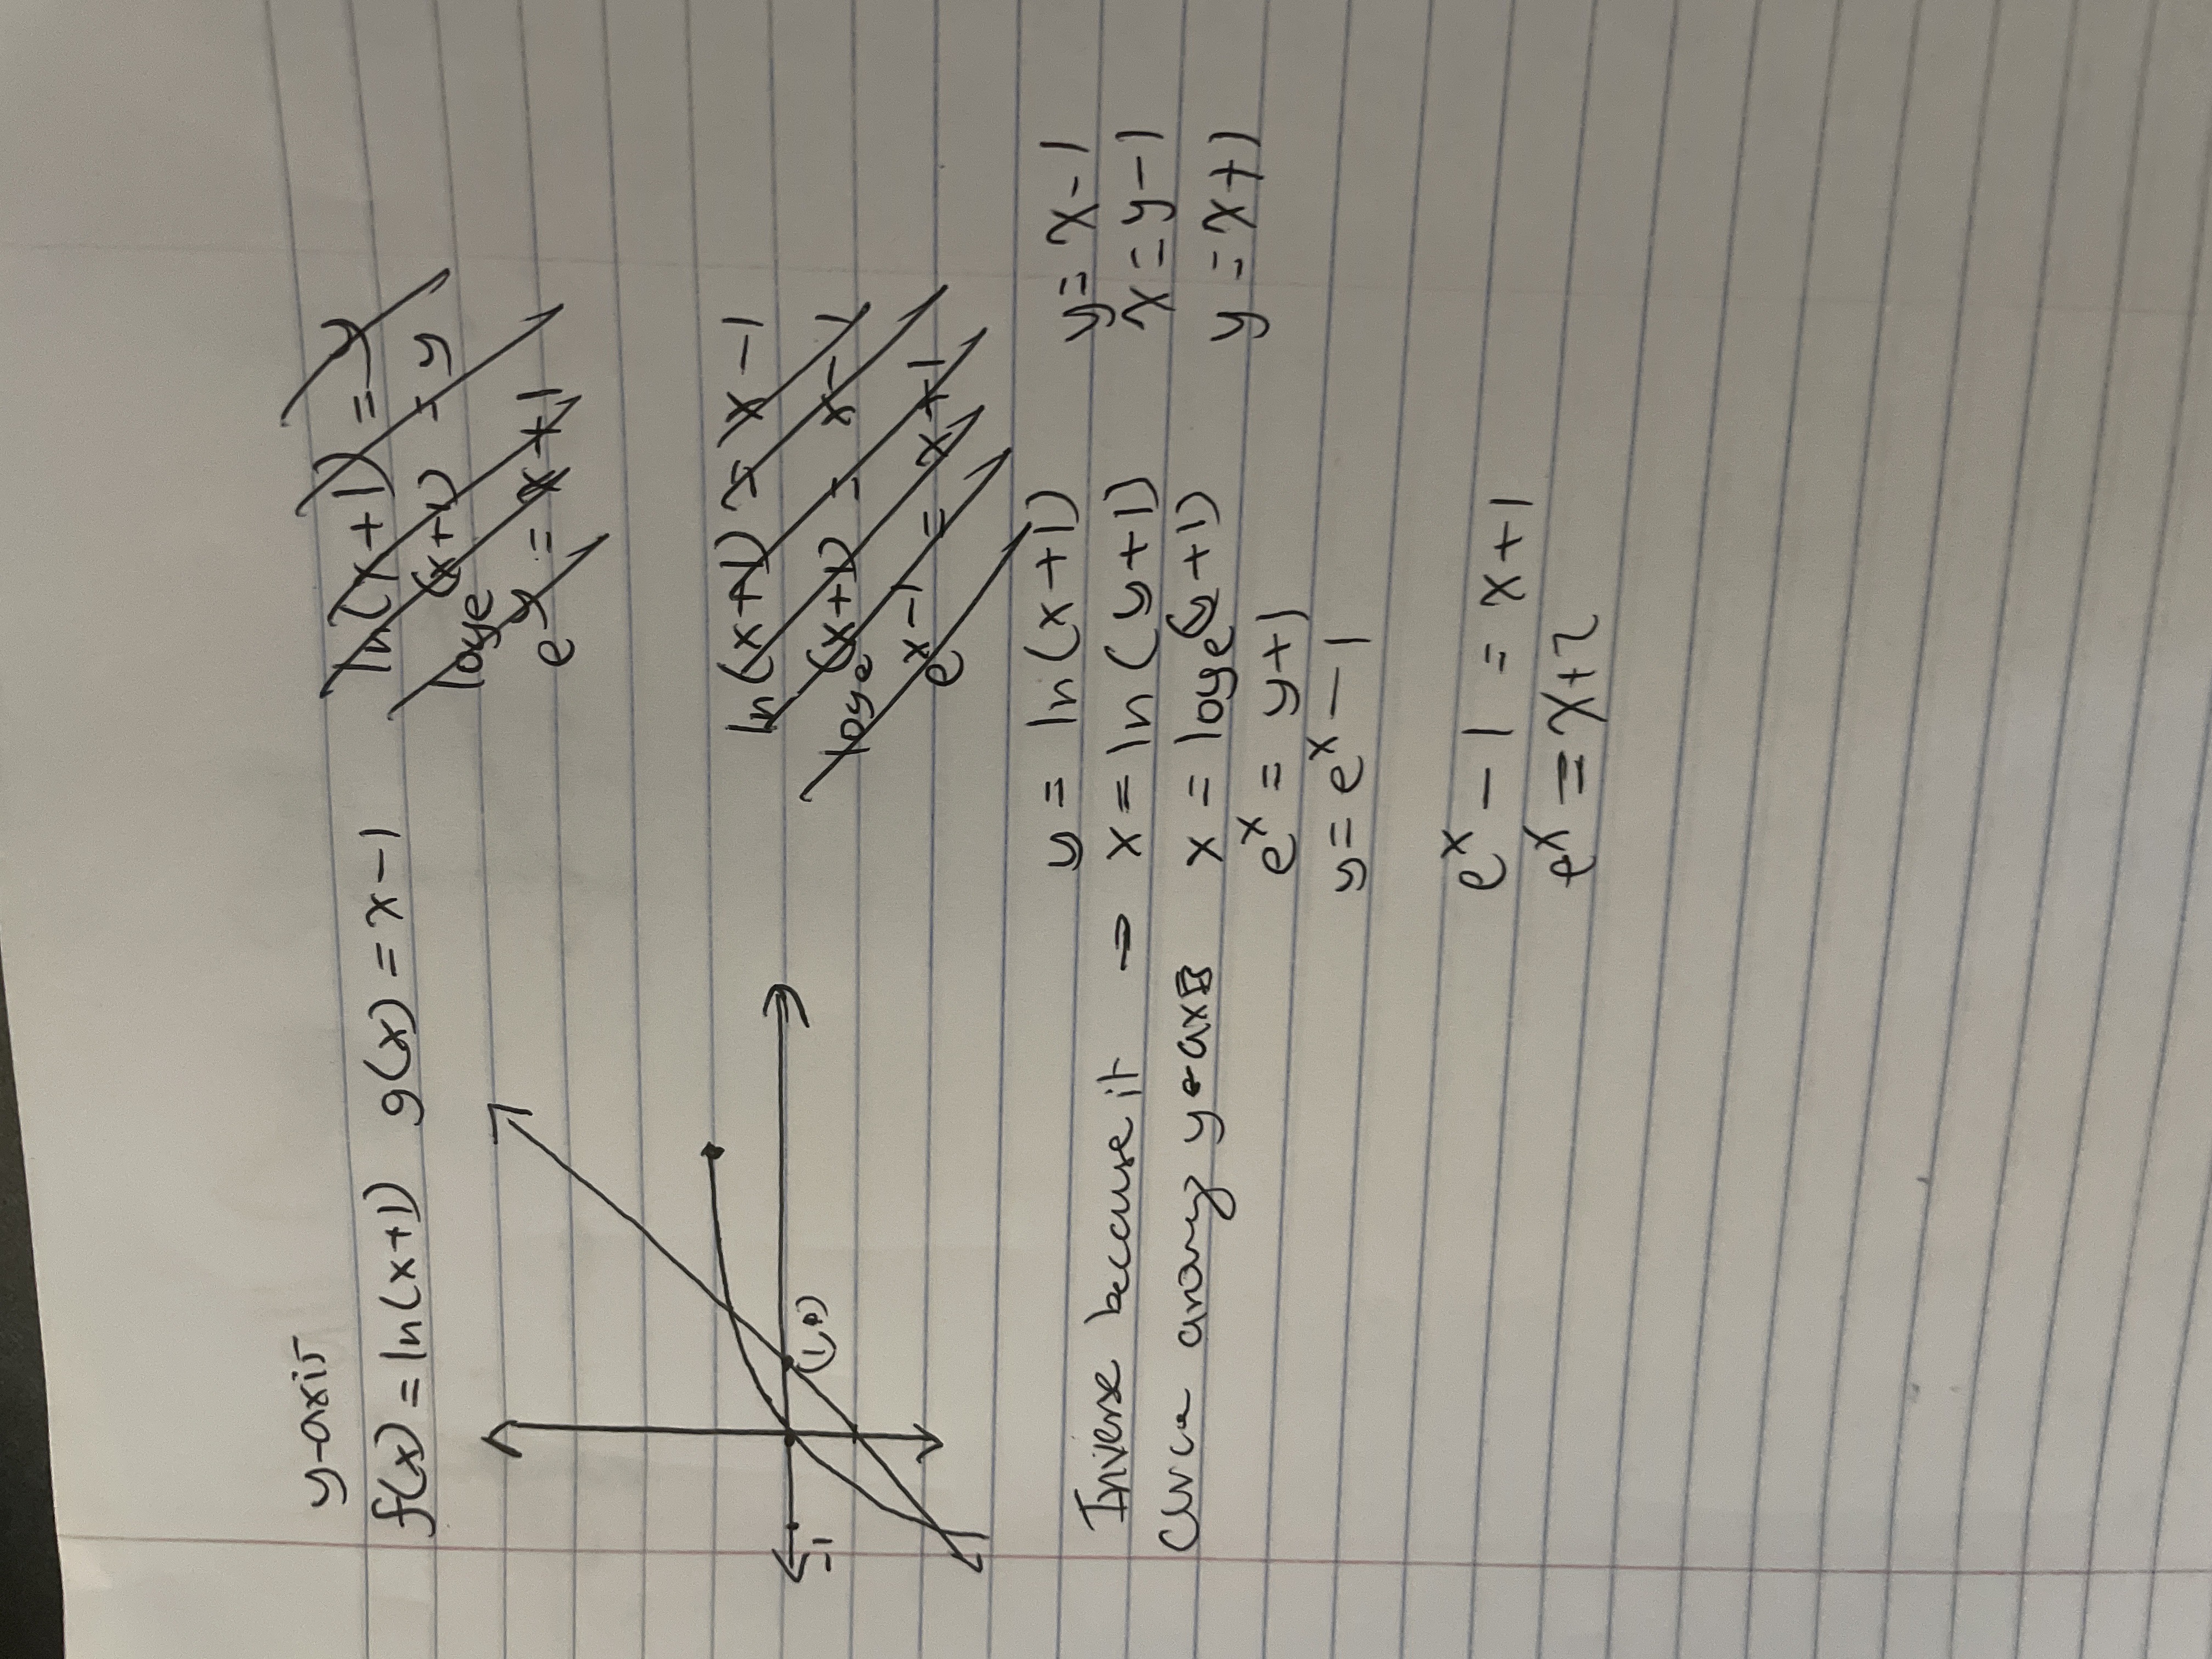 y-axis
f(x) = ln(x+1) g(x) = x-1
ln(x+1) = y
loge(x+1) = y
e^y = x+1
-1
(1,0)
ln(x+1) = x-1
loge(x+1) = x-1
e^x-1 = x+1
Inverse because it
y-axis
→ y = ln(x+1)
x = ln(y+1)
x = loge(y+1)
e^x = y+1
y = e^x - 1
y = x-1
x = y-1
y = x+1
e^x - 1 = x+1
e^x = x+2